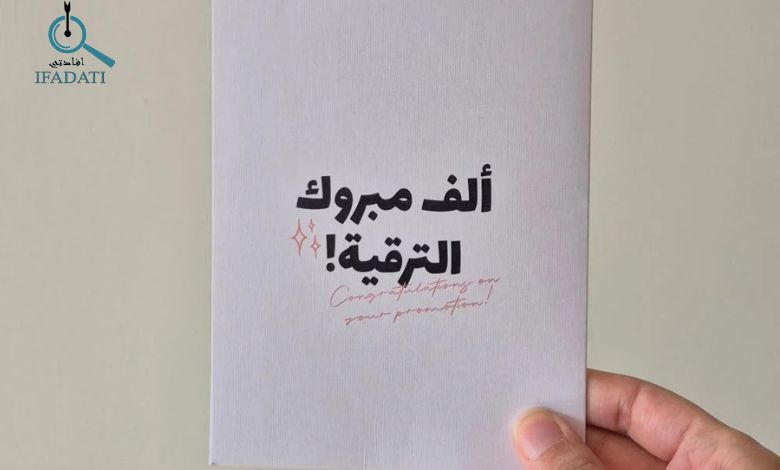 افادتي
IFADATI
ألف مبروك
الترقية!
Congratulations on
your promotion!